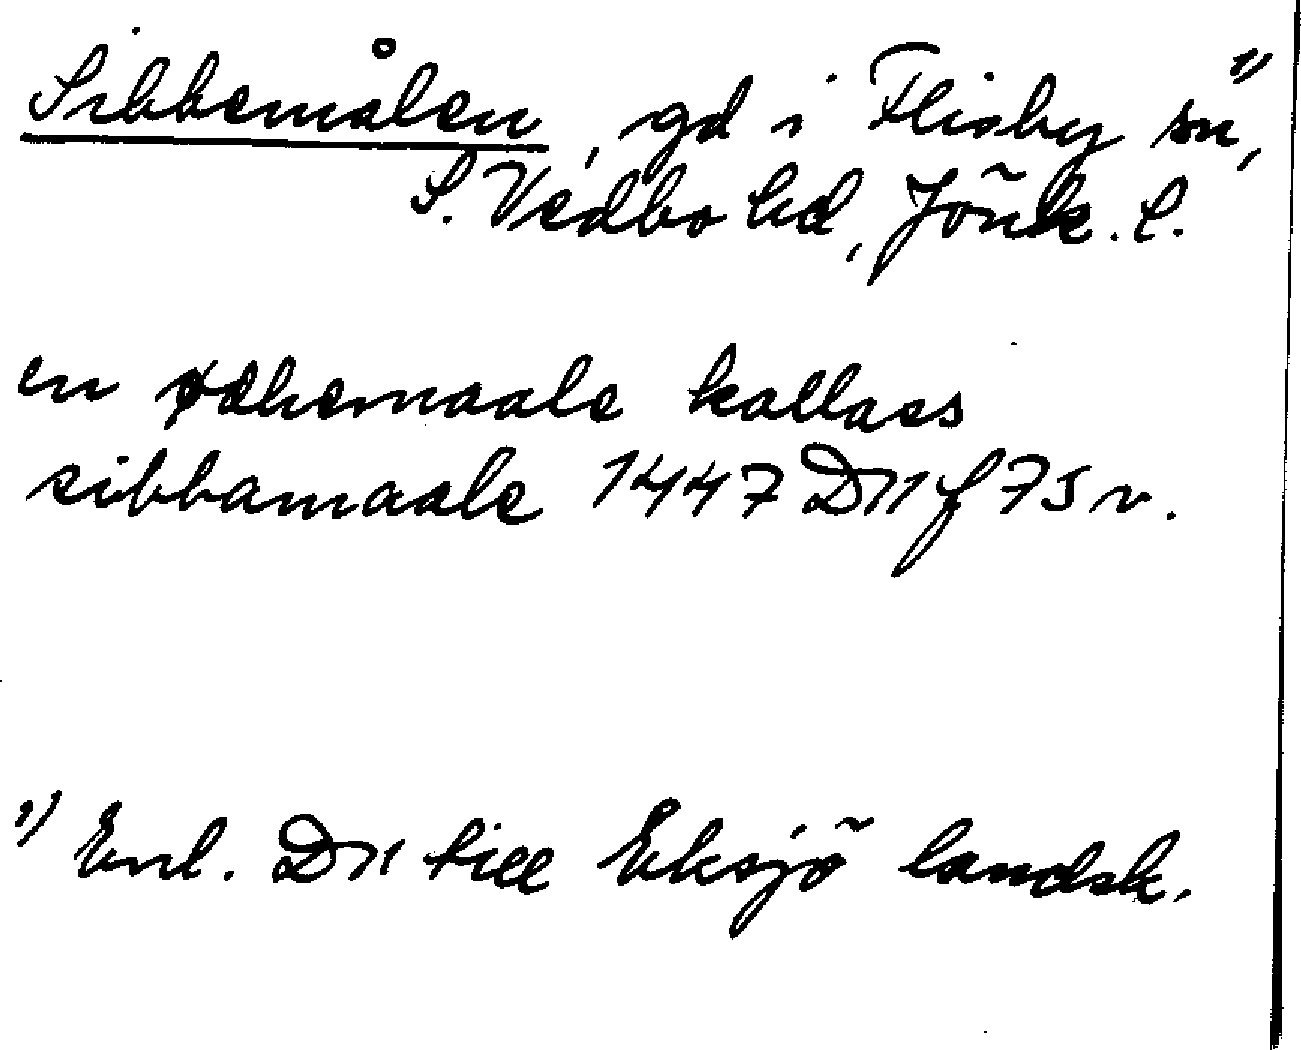 Sibbemålen, gd i Flisby sn, 1)
S. Vedbo hd, Jönk. l.
en øthemaale kallass
sibbamaale 1447 D11 f 75 v.
1) Enl. D11 till Eksjö landsk.